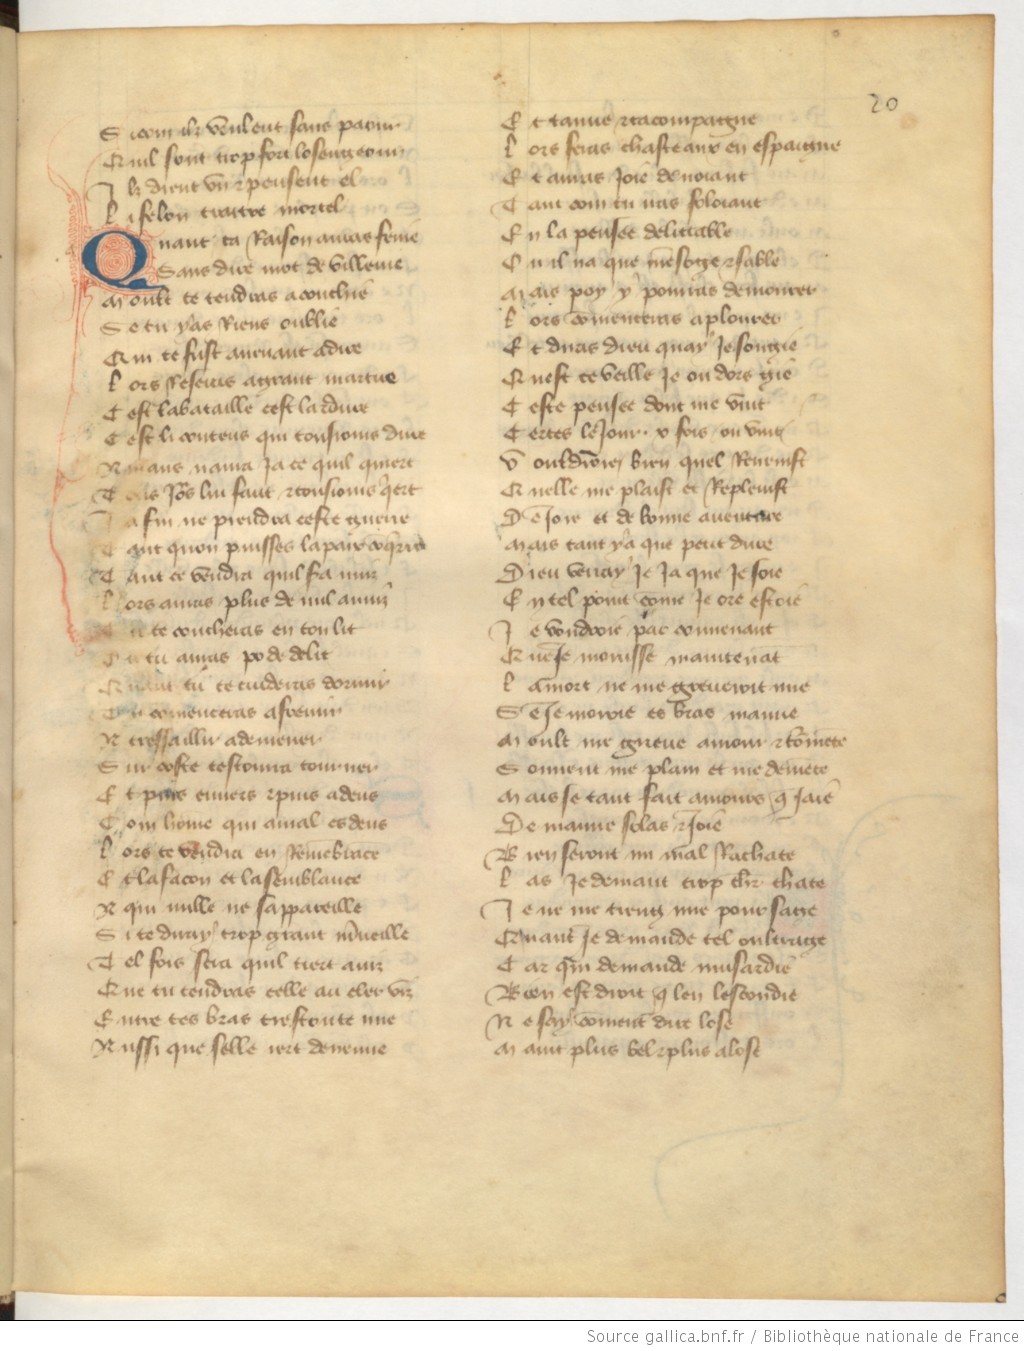 20
S icom ilz veulent sans paour
Q uil sont trop fort losengeour
I lz dient un et pensent el
L i felon traitre mortel
Quant ta Raison auras fenie
Sans dire mot de villenie
M oult te tendras a conchie
S e tu y as Riens oublie
Q ui te fust auenant a dire
L ors Reseras a grant martire
C est la bataille cest lardure
C est li contens qui tousiours dure
A mans naura ja ce quil quiert
T ous jors lui faut et tousiours qiert
J a fin ne prendra ceste guerre
T ant quon puisses la paix
T ant ce vendra quil sera nuiz
L ors auras plus de mil anuiz
T u te coucheras en ton lit
O u tu auras po de delit
Q uant tu te cuideras dormir
T u comenceras a fremir
A tressaillir a demener
S ur coste testoura tourner
E t puis enuers et puis adens
C om home qui a mal es dens
L ors te vendra en Remebrace
E t la facon et la semblance
A qui nulle ne sappareille
S i te diray trop grant merueille
T el fois sera quil tiert auiz
Q ue tu tendras celle au cler viz
E ntre tes bras trestoute nue
A ussi que selle iert deuenue
E t tamie et ta compaigne
L ors feras chasteaux en espaigne
E t auras joie de noiant
T ant com tu iras foloiant
E n la pensee delitable
O u il na que mesonge et fable
M ais poy y pourras demourer
L ors comenceras a plourer
E t diras dieu quay je songie
Q uest ce veille je ou dors gie
C este pensee dont me vint
C ertes le jour v fois ou vint
V ouldroie bien quel Reuenist
Q uelle me plaist et Replenist
D e joie et de bonne auenture
M ais tant y a que peut dure
D ieu verray je ja que je soie
E n tel point come je ore estoie
J e voudroie par conuenant
Q ue je mourisse maintenat
L a mort ne me greueroit mie
S e je moroie es bras mamie
M oult me grieue amour et tormete
S ouuent me plain et me demete
M ais se tant fait amours q jaie
D e mamie solas et joie
B ien seront mi mal Rachate
L as je demant trop chr chate
J e ne me tieng mie pour sage
Q uant je demande tel oultrage
C ar qui demande musardie
B ien est droit q len lescondie
N e say coment dire lose
M aint plus bel et plus alose
Source gallica.bnf.fr / Bibliothèque nationale de France